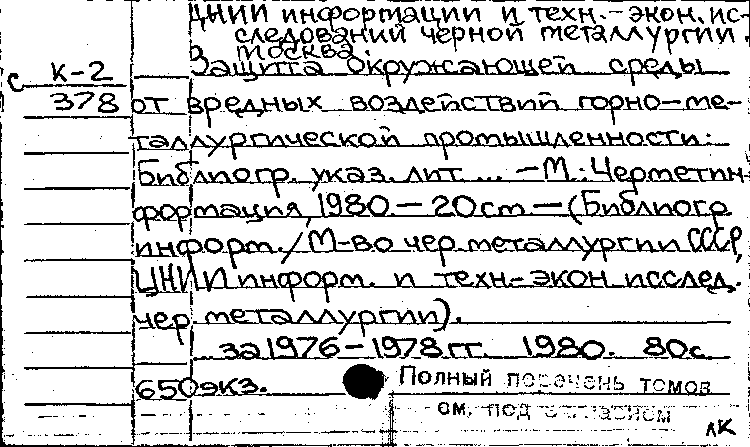 ЦНИИ информации и техн.-экон. ис-
следований черной металлургии.
Москва.
с К-2
378
Защита окружающей среды
от вредных воздействий горно-ме-
таллургической промышленности:
Библиогр. указ. лит ... - М.: Черметин-
формация, 1980. - 20 см - (Библиогр
информ. / М-во чер. металлургии СССР,
ЦНИИ информ. и техн-экон исслед.
чер. металлургии).
за 1976-1978 гг. 1980. 80 с.
650 экз.
Полный перечень томов
см. под заглавием
ЛК